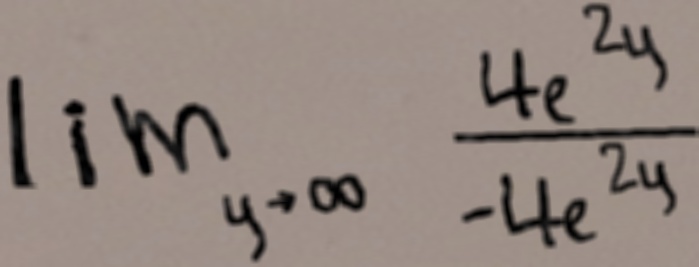 lim y→∞ 4e^{2y} / -4e^{2y}